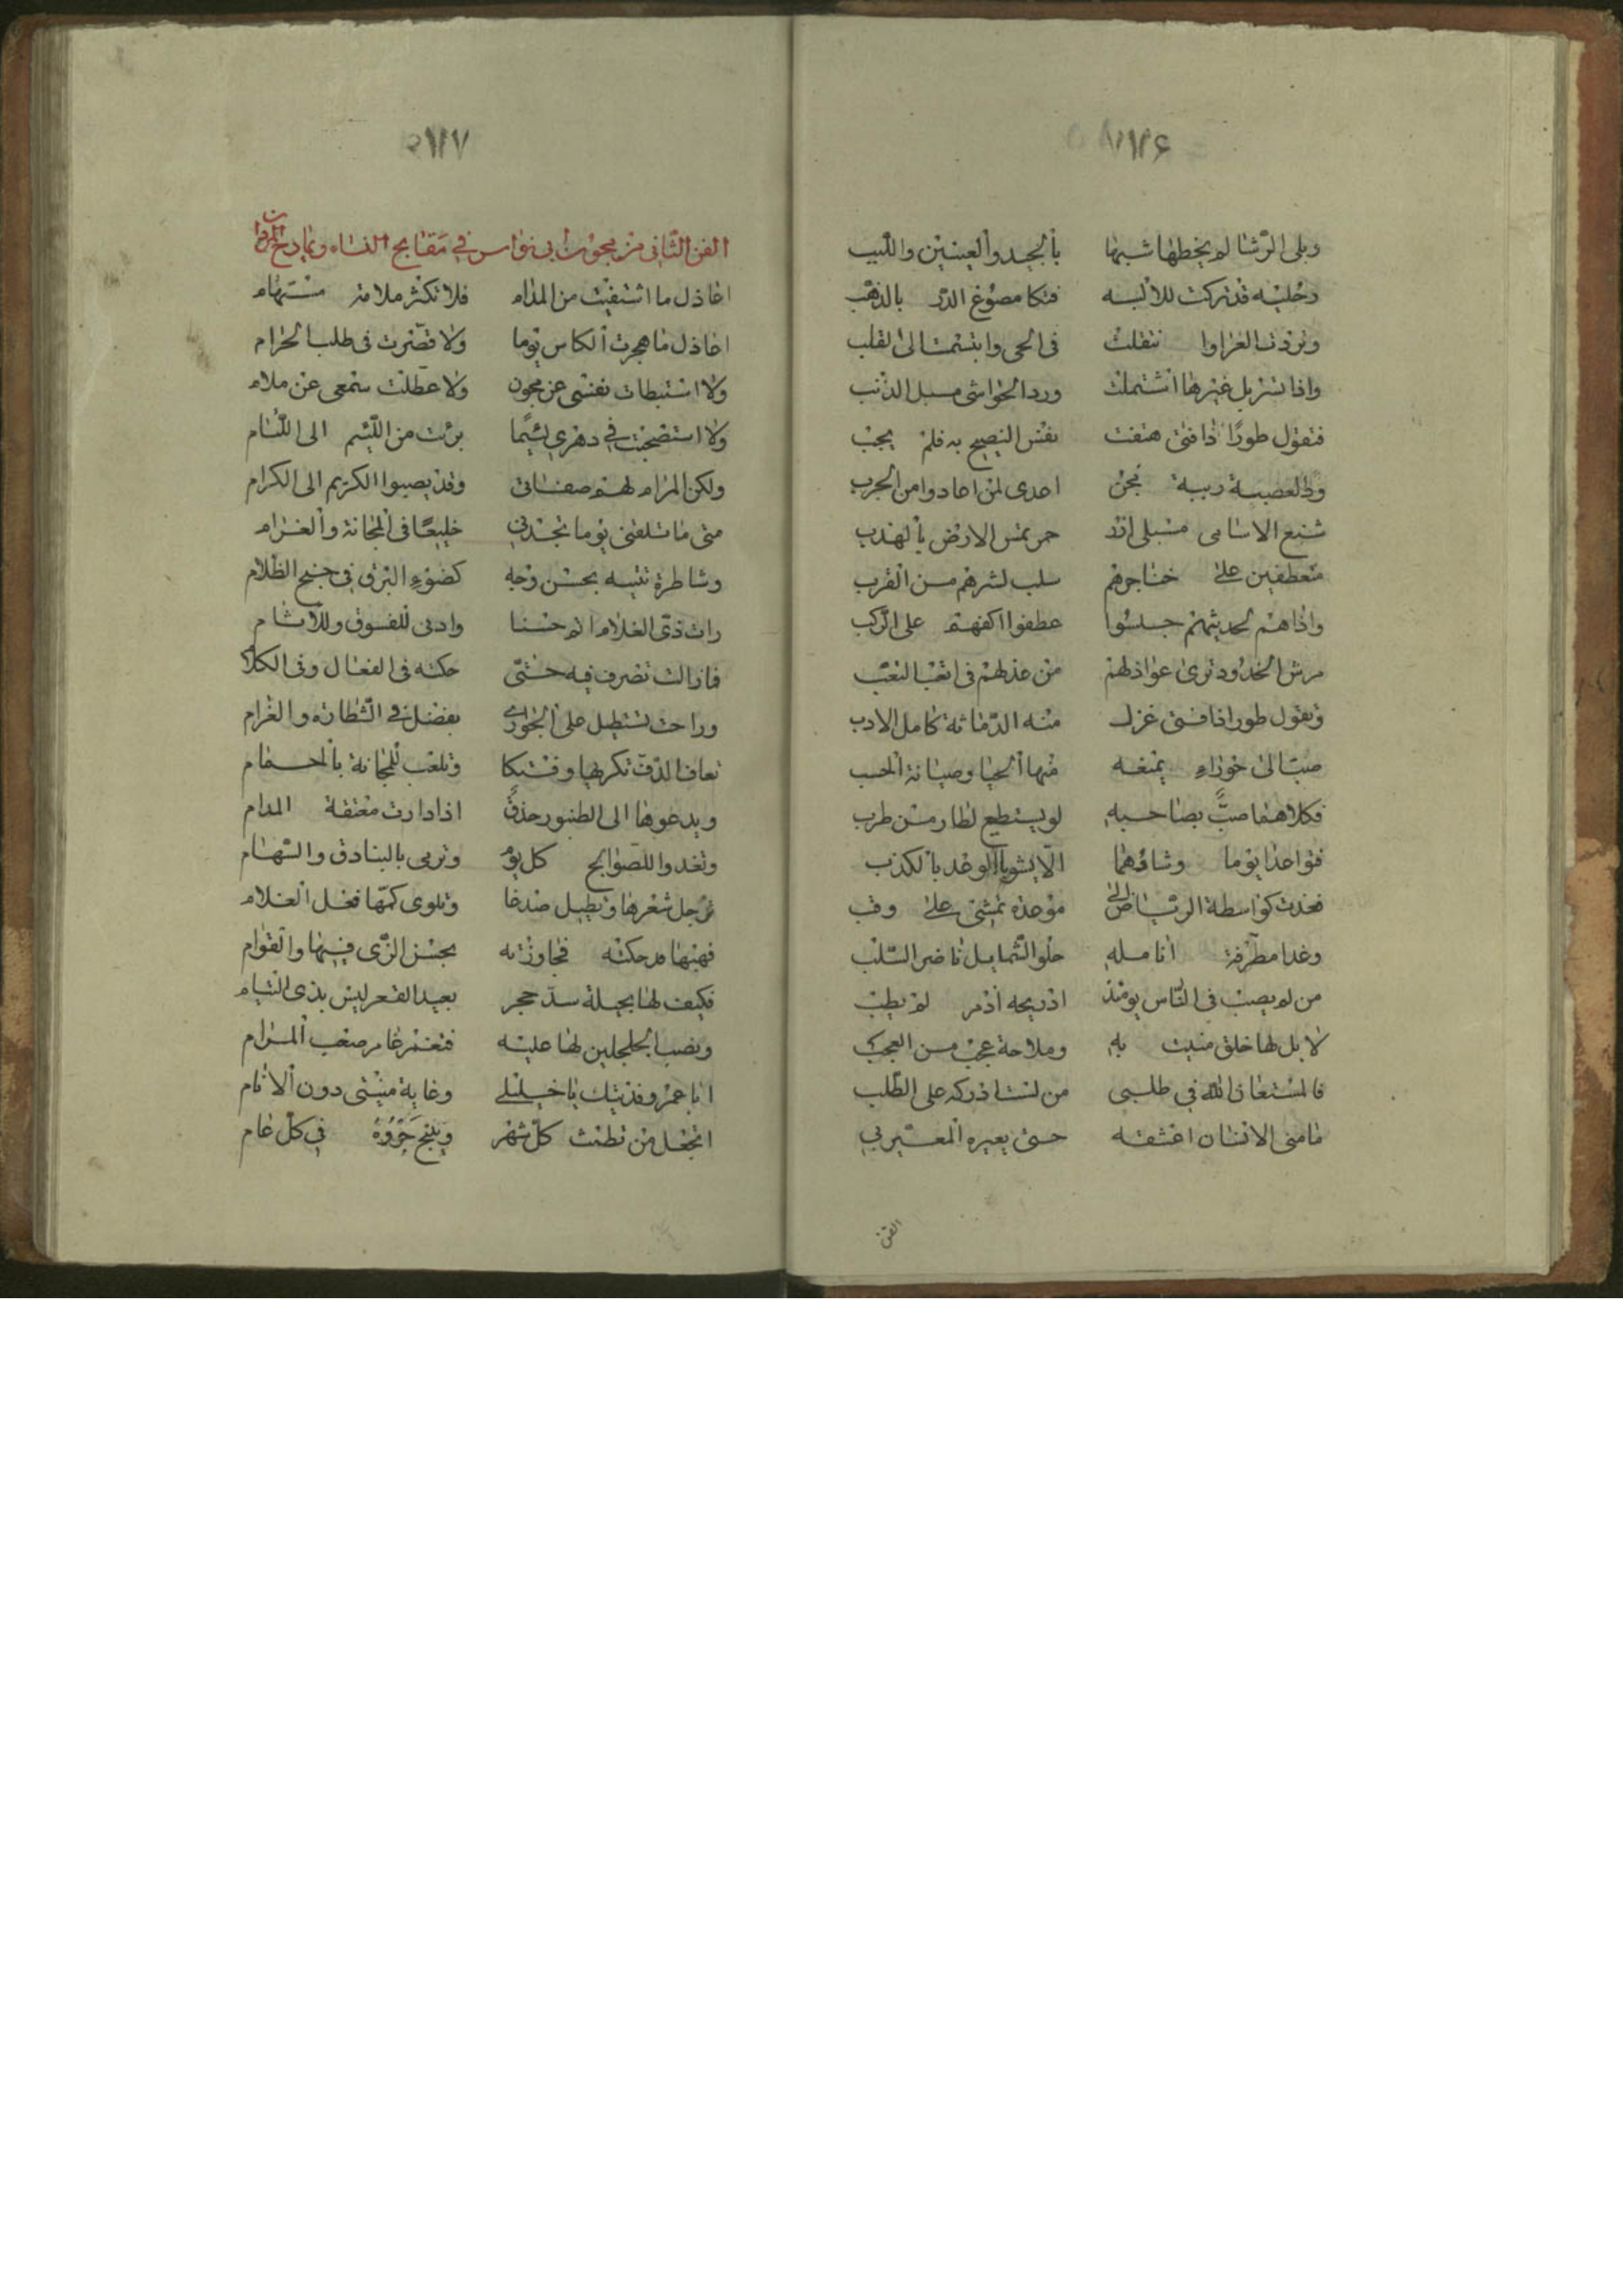 ١١٢٦
وبلى الرشا لم يخطها شبها بالجيد والعينين واللبب
وحليه قد تركت للابسه فتكا مصوغ الدر بالذهب
تنقلت فى الحى وابتسمت الى القلب
واذا تسربل غيرها اشتملت ورد الحواشى مسبل الذنب
فتقول طورًا ذا فتى هتفت نفس النصيح به فلم يجب
اعدى لمن اعادوا من الجرب
شنع الاسامى مسبلى ازر حمر تمس الارض بالهدب
متعطفين على خناجرهم سلب لشربهم من القرب
واذا هم لحديثهم جلسوا عطفوا اكفهم على الركب
مرش الخدود ترى عواذلهم من عذلهم فى اتعب التعب
وتقول طورا ذا فتى غزل منه الدماثة كامل الادب
صب الى حوراء يمنعه منها الحيا وصيانة الحسب
فكلاهما صبٌّ بصاحبه لو يستطيع لطار من طرب
فتواعدا يوما وشانهما الا يشوبا الوعد بالكذب
فغدت كواسطة الرياض الى موعده تمشى على رقب
وغدا مطرفة انامله حلو الشمايل ناضر السلب
من لم يصب فى الناس يومئذ اذ ريحه اذ مر لم يطب
لا بل لها خلق منيت به وملاحة عجب من العجب
فالمستعان الله فى طلبى من لست ادركه على الطلب
ما منى الانسان اعشقه حتى يعيره المعير بى
الفن
١١٢٧
الفن الثانى من مجون ابى نواس فى مقابح النساء ومادح المردان
اعاذل ما اشتفيت من المدام فلا تكثر ملامة مستهام
اعاذل ما هجرت الكاس يوما ولا قصرت فى طلب الحرام
ولا استبطات نفسى عن مجون ولا عطلت سمعى عن ملام
ولا استصحبت فى دهرى لئيمًا برئت من اللئيم الى اللئام
ولكن الكرام لهم صفاتى وقد يصبوا الكريم الى الكرام
متى ما تلقنى يوما تجدنى خليعًا فى المجانة والغرام
وشاطرة تتيه بحسن وجه كضوء البرق فى جنح الظلام
رات زى الغلام اتم حسنا وادنى للفسوق وللاثام
فما زالت تصرف فيه حتى حكته فى الفعال وفى الكلام
وراحت تستطيل على الجوارى بفضل فى الشطارة والغرام
تعاف الدف تكريها وفتكا وتلعب للمجانة بالحمام
ويدعوها الى الطنبور حذق اذا دارت معتقة المدام
وتغدوا للصوالج كل يوم وترمى بالبنادق والسهام
ترجل شعرها وتطيل صدغا وتلوى كمها فعل الغلام
فهبها قد حكته فجاوزته بحسن الزى فيها والقوام
فكيف لها بحيلة سد حجر بعيد القعر ليس بذى التيام
ونصب الجلجلين لها عليه فتغمز غامر صعب المرام
ابا عمرو فديتك يا خليلى وغاية منيتى دون الانام
اتجعل من تطمث كل شهر وينبح جروه فى كل عام